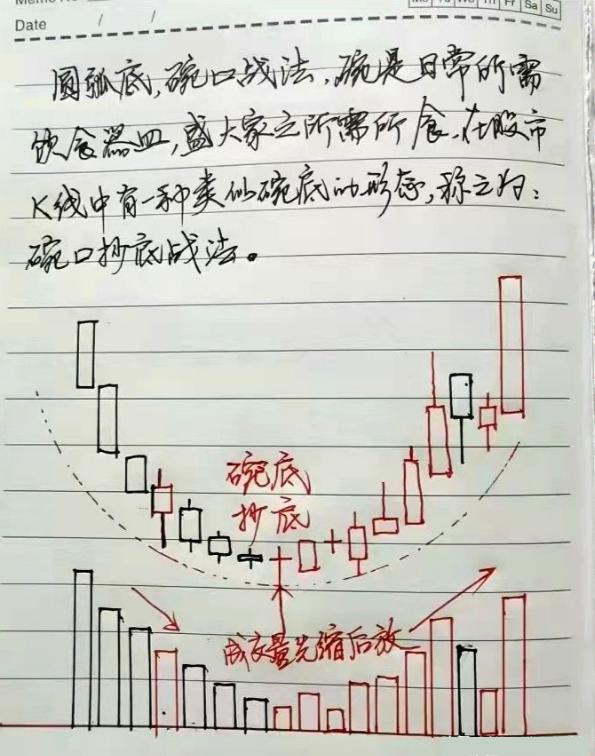 Date / /
Fr Sa Su
圆弧底,碗口战法,碗是日常所需
饮食器皿,盛大家之所需所食,在股市
K线中有一种类似碗底的形态,称之为:
碗口抄底战法。
碗底
抄底
成交量先缩后放